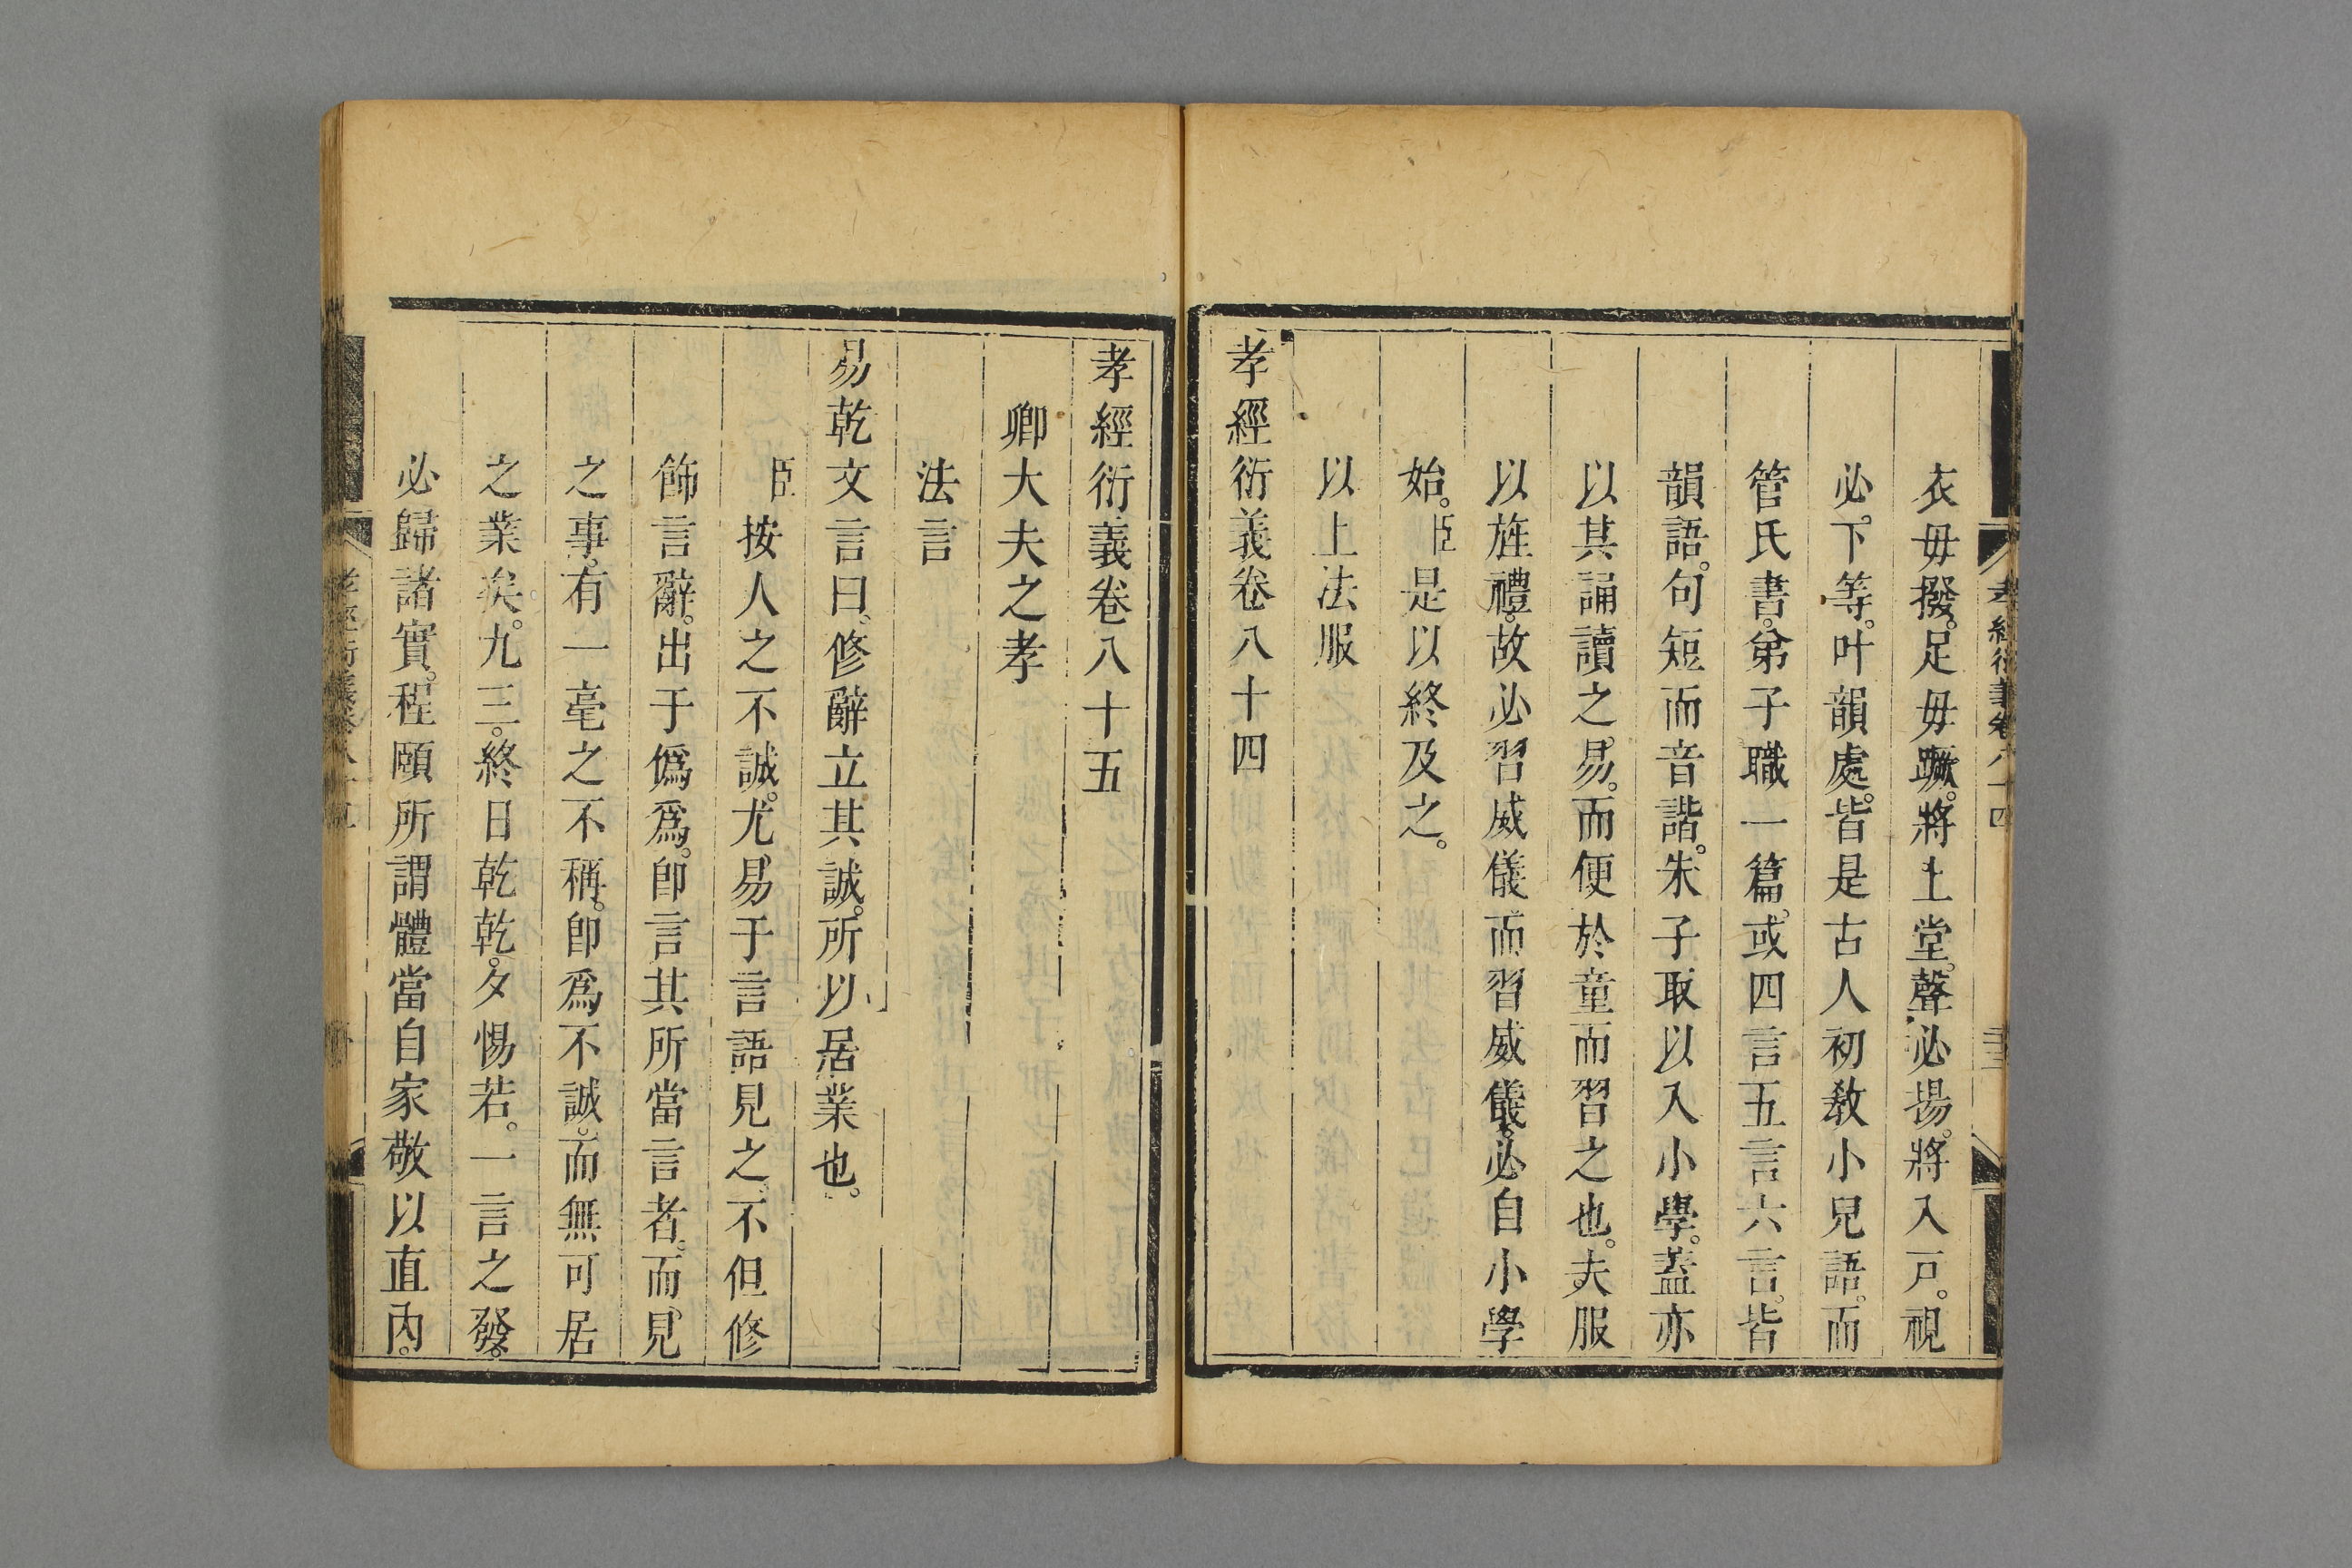 衣毋撥。足毋蹶。將上堂。聲必揚。將入戸。視
必。下等。叶韻處。皆是古人初敎小兒語。而
管氏書。弟子職一篇。或四言五言六言。皆
韻語。句短而音諧。朱子取以入小學。蓋亦
以其誦讀之易。而便於童而習之也。夫服
以旌禮。故必習威儀而習威儀。必自小學
始。臣是以終及之。
以上法服
孝經衍義卷八十四
孝經衍義卷八十四
孝經衍義卷八十五
卿大夫之孝
法言
易乾文言曰。修辭立其誠。所以居業也。
臣按人之不誠。尤易于言語見之。不但修
飾言辭。出于僞爲。卽言其所當言者。而見
之事。有一毫之不稱。卽爲不誠。而無可居
之業矣。九三。終日乾乾。夕惕若。一言之發。
必歸諸實。程頤所謂體當自家敬以直內。
孝經衍義卷八十五